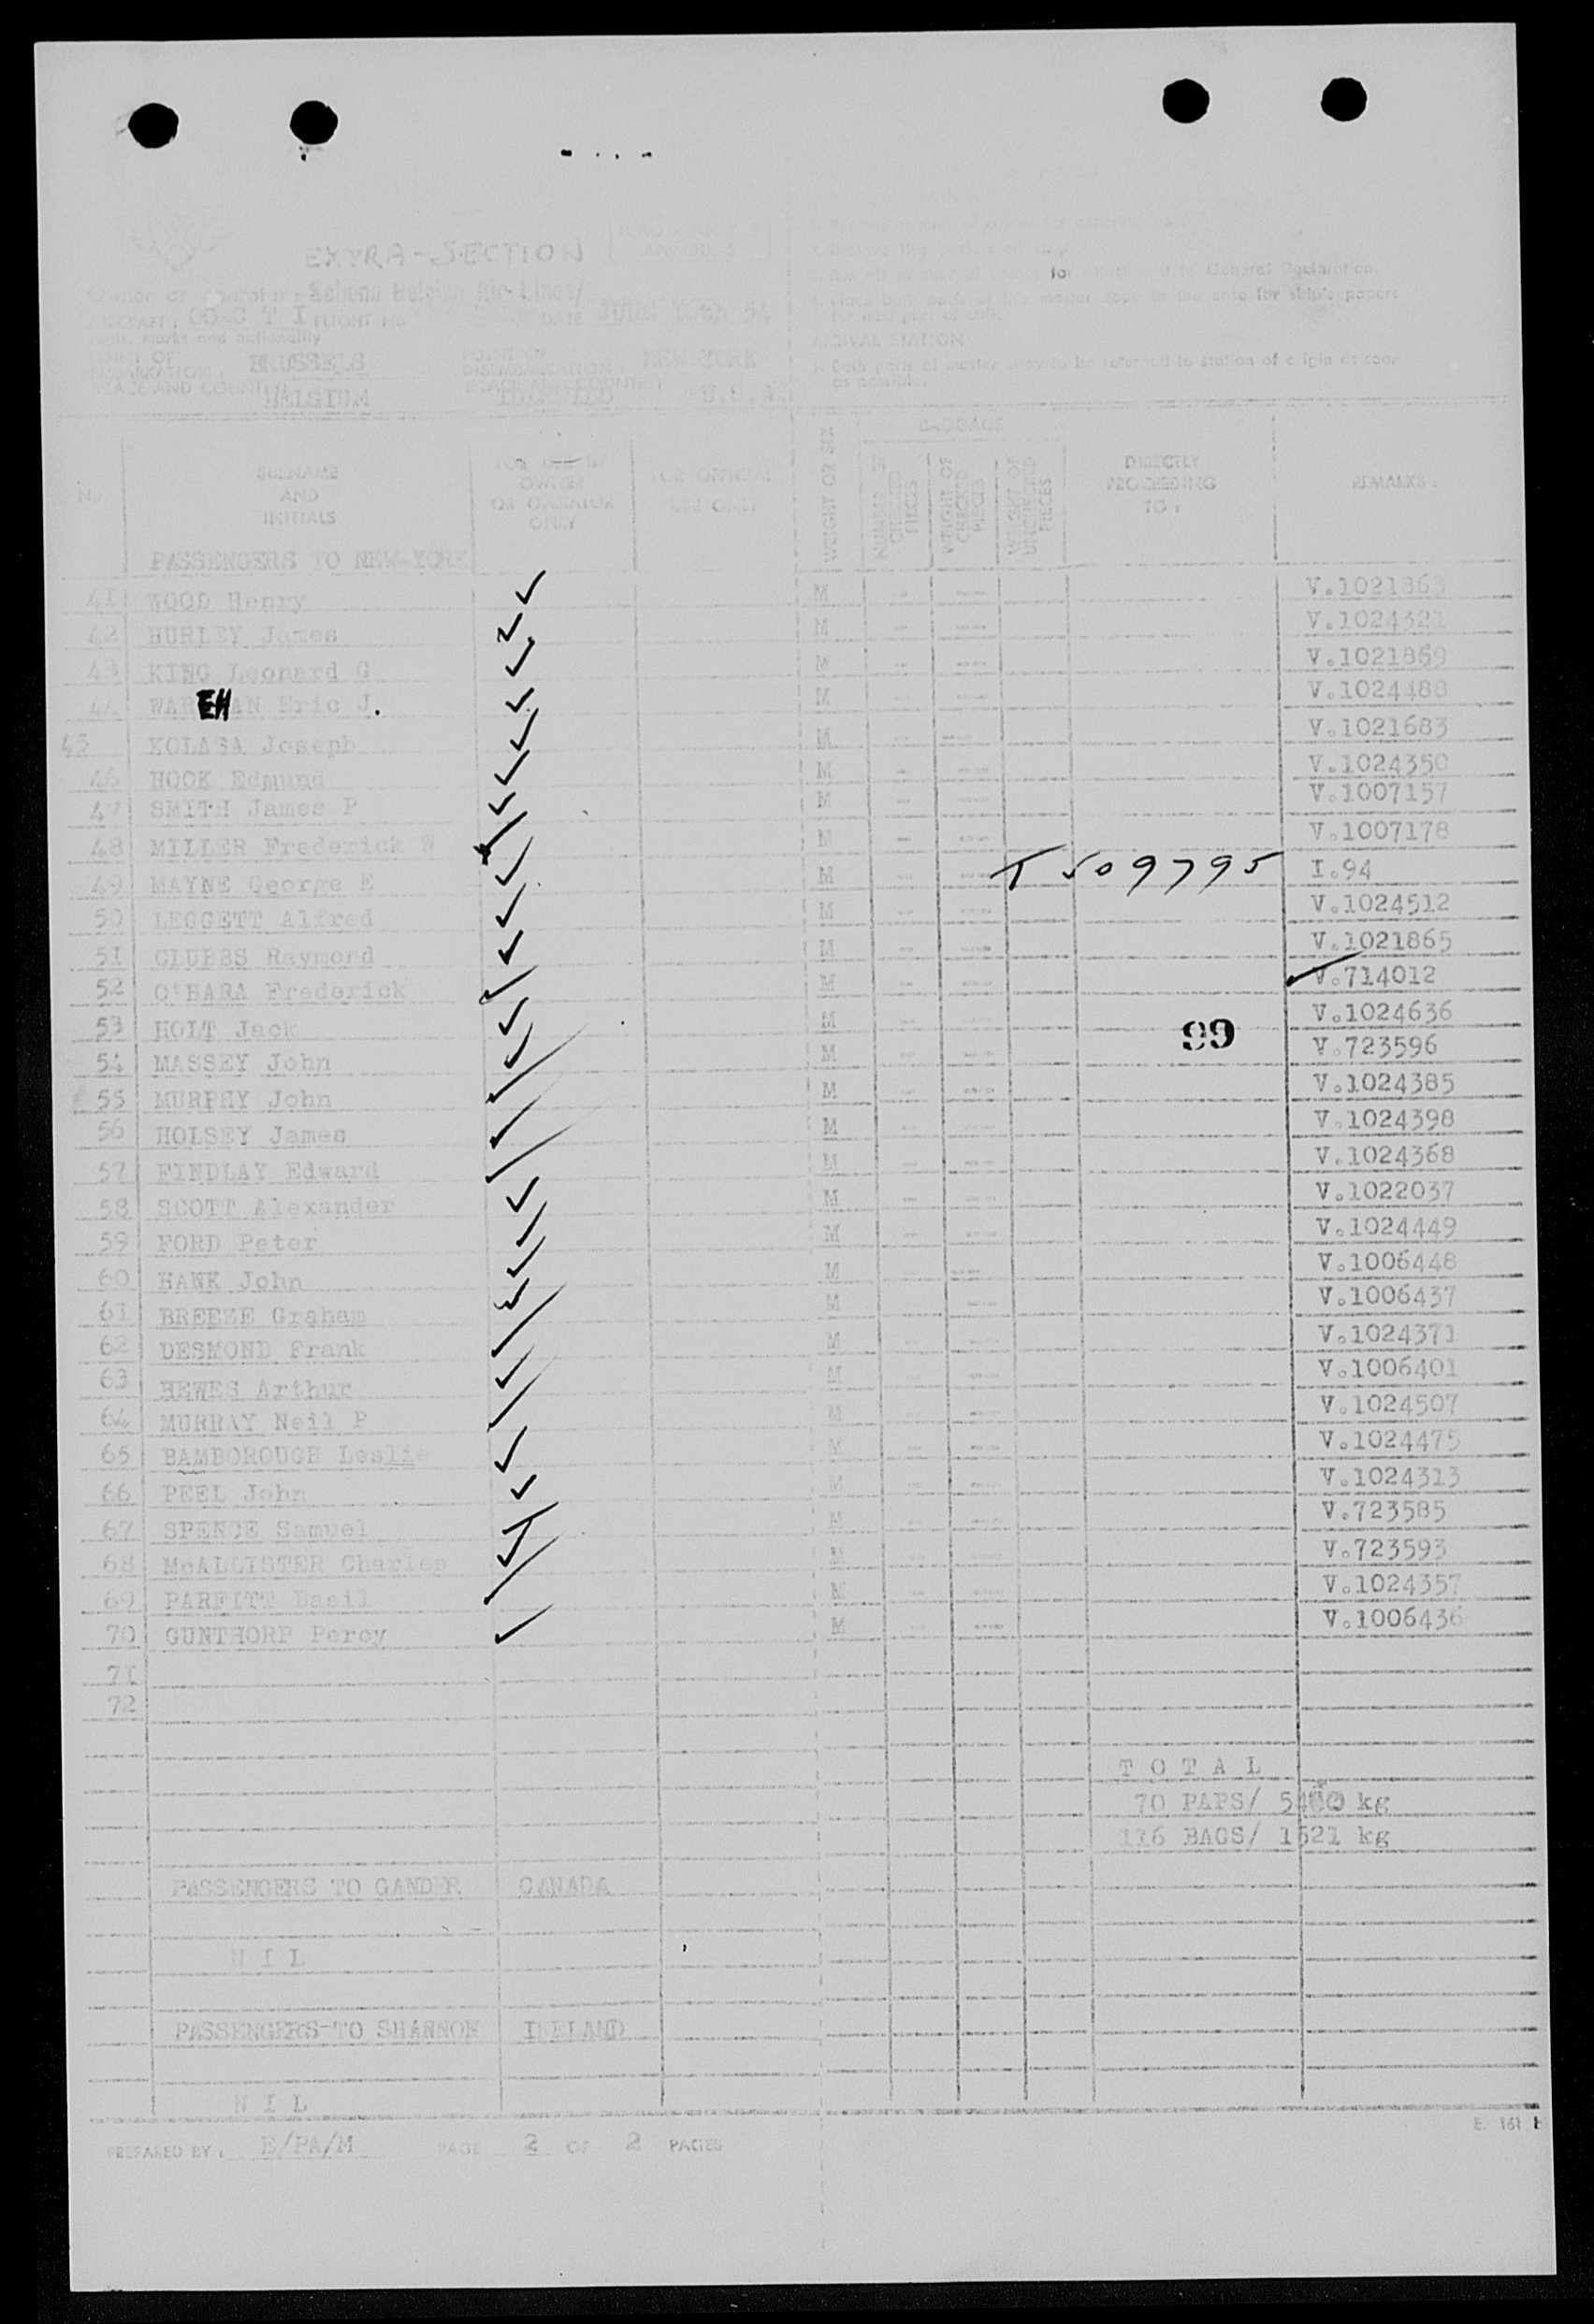 EXTRA-SECTION
Owner or operator: Sabena Belgian Air Lines/
AIRCRAFT: OO-C T I FLIGHT No DATE
marks and nationality
POINT OF EMBARKATION: BRUSSELS POINT OF DISEMBARKATION: NEW-YORK
PLACE AND COUNTRY BELGIUM PLACE AND COUNTRY IDLEWILD U.S.A.
to General Declaration.
for ship's papers
ARRIVAL STATION
to station of origin as soon
as possible.
No SURNAME AND INITIALS FOR USE BY OWNER OR OPERATOR ONLY FOR OFFICIAL USE ONLY WEIGHT OR SEX BAGGAGE NUMBER CHECKED PIECES WEIGHT OF CHECKED PIECES WEIGHT OF UNCHECKED PIECES DIRECTLY PROCEEDING TO: REMARKS:
PASSENGERS TO NEW-YORK
41 WOOD Henry ✓ M -- --- V.1021863
42 HURLEY James ✓ M -- --- V.1024321
43 KING Leonard G ✓ M -- --- V.1021869
44 WAREHAN Eric J. ✓ M --- V.1024488
45 KOLASA Joseph ✓ M -- --- V.1021683
46 HOOK Edmund ✓ M -- --- V.1024350
47 SMITH James P ✓ M -- --- V.1007157
48 MILLER Frederick W ✓ M -- --- V.1007178
49 MAYNE George E ✓ M -- --- T 509795 I.94
50 LEGGETT Alfred ✓ M -- --- V.1024512
51 CLUBBS Raymond ✓ M -- --- V.1021865
52 O'HARA Frederick ✓ M -- --- ✓ V.714012
53 HOLT Jack ✓ M -- --- V.1024636
99
54 MASSEY John ✓ M -- --- V.723596
55 MURPHY John ✓ M -- --- V.1024385
56 HOLSEY James ✓ M -- --- V.1024398
57 FINDLAY Edward ✓ M -- --- V.1024368
58 SCOTT Alexander ✓ M -- --- V.1022037
59 FORD Peter ✓ M -- --- V.1024449
60 HANK John ✓ M -- --- V.1006448
61 BREEZE Graham ✓ M --- V.1006437
62 DESMOND Frank ✓ M -- --- V.1024371
63 HEWES Arthur ✓ M -- --- V.1006401
64 MURRAY Neil P ✓ M -- --- V.1024507
65 BAMBOROUGH Leslie ✓ M -- --- V.1024475
66 PEEL John ✓ M -- --- V.1024313
67 SPENCE Samuel ✓ M -- --- V.723585
68 McALLISTER Charles ✓ M -- --- V.723593
69 PARFITT Basil ✓ M -- --- V.1024357
70 GUNTHORP Percy ✓ M -- --- V.1006436
71
72
T O T A L
70 PAPS/ kg
116 BAGS/ 1521 kg
PASSENGERS TO GANDER CANADA
N I L
PASSENGERS TO SHANNON IRELAND
N I L
PREPARED BY: E/PA/M PAGE 2 OF 2 PAGES
E. 161